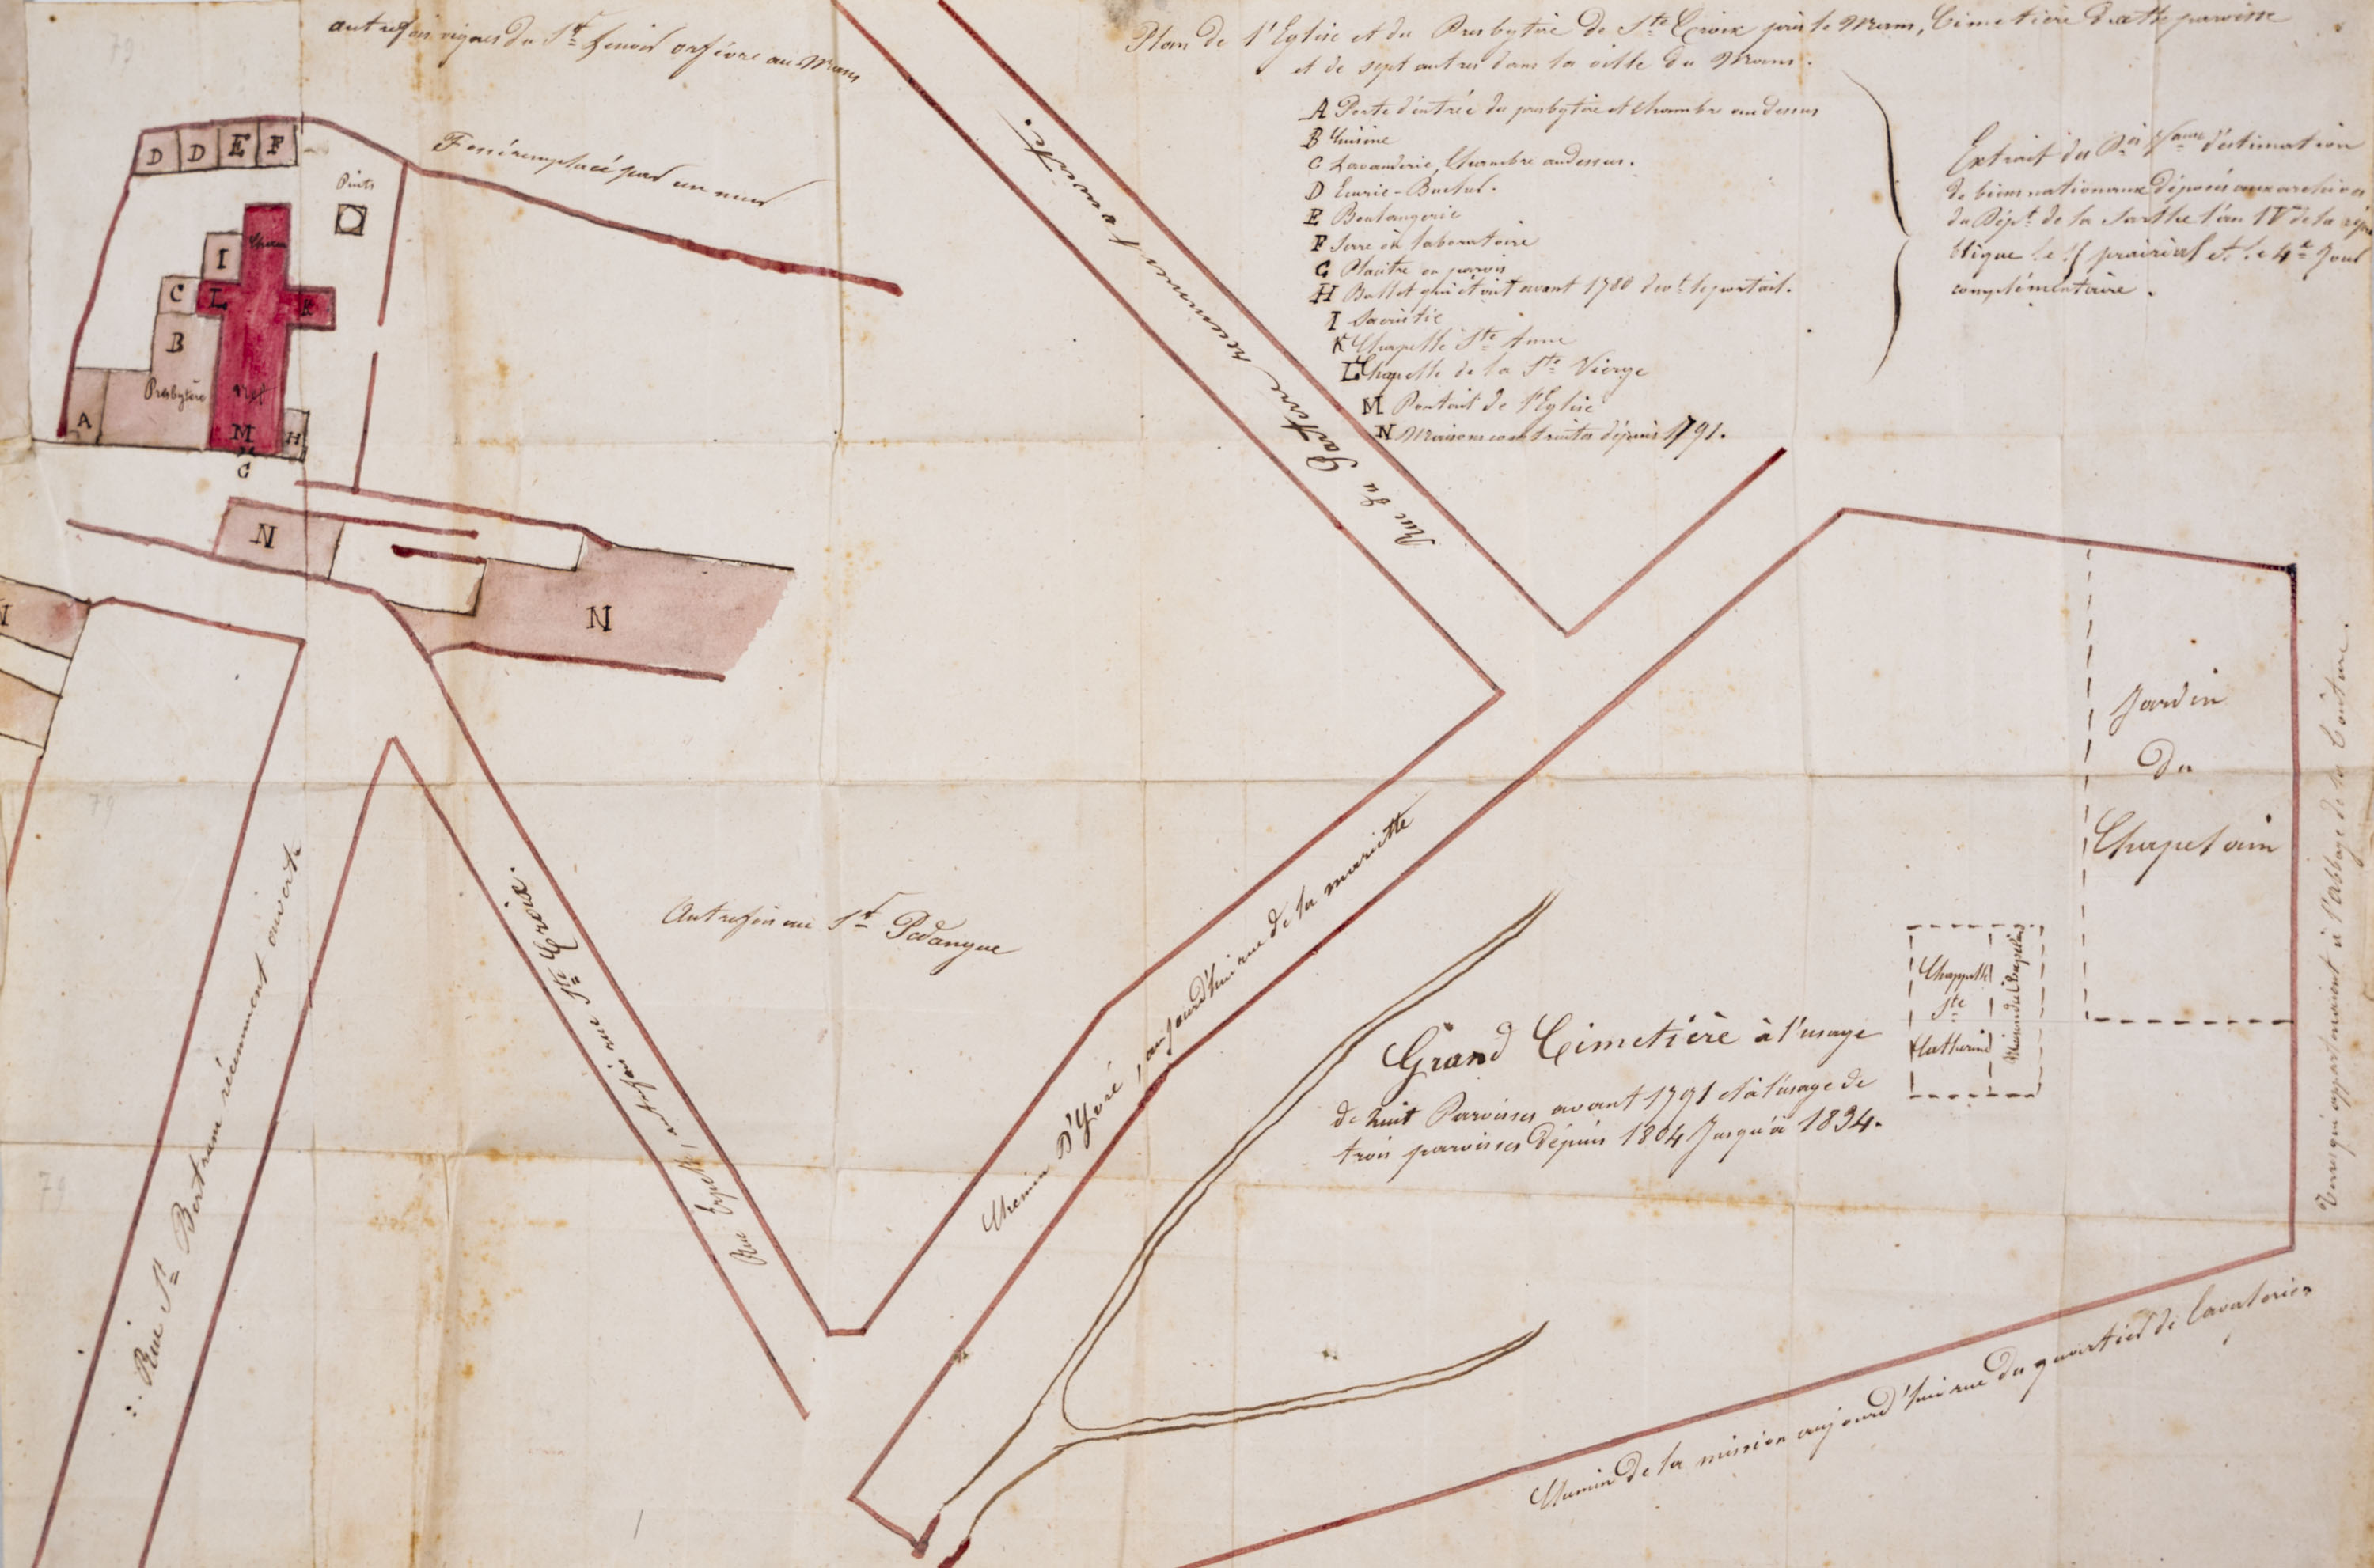 autrefois vignes du Sr. Lenoir orfèvre au Mans
Plan de l'Eglise et du Presbytère de Ste. Croix près le Mans, Cimetière de cette paroisse
et de sept autres dans la ville du Mans.
A Porte d'entrée du presbytère et Chambre au dessus
B Cuisine
C Lavanderie, Chambre au dessus.
D Ecurie - Bucher.
E Boulangerie
F Serre où laboratoire
G Placitre ou parvis
H Ballet qui étoit avant 1780 devt. le portail.
I Sacristie
K Chapelle Ste. Anne
L Chapelle de la Ste. Vierge
M Portail de l'Eglise
N Maisons construites dépuis 1791.
Extrait du d'éstimation
de biens nationaux déposés aux archives
du Dépt. de la Sarthe l'an IV de la répu
blique le prairial et le 4e. Jour
complémentaire.
Fossé remplacé par un mur
D D E F
Puits
Choeur
I
C L K
B
Presbytère Nef
A M H
G
N
N
N
Rue du récemment ouverte.
Jardin
du
Chapelain
Terres qui appartenaient à l'abbaye de la Couture.
Chappelle
Ste.
Catherine
Maison du Chapelain
Rue St. Bertrand récemment ouverte
Rue Erpell, autrefois rue Ste. Croix.
Autrefois au Sr. Padanque
Chemin D'Yvré, aujourd'hui rue de la mariette
Grand Cimetière à l'usage
de huit Paroisses avant 1791 et à l'usage de
trois paroisses dépuis 1804 Jusqu'à 1834.
Chemin de la mission aujourd'hui rue du quartier de Cavalerie
79
79
79